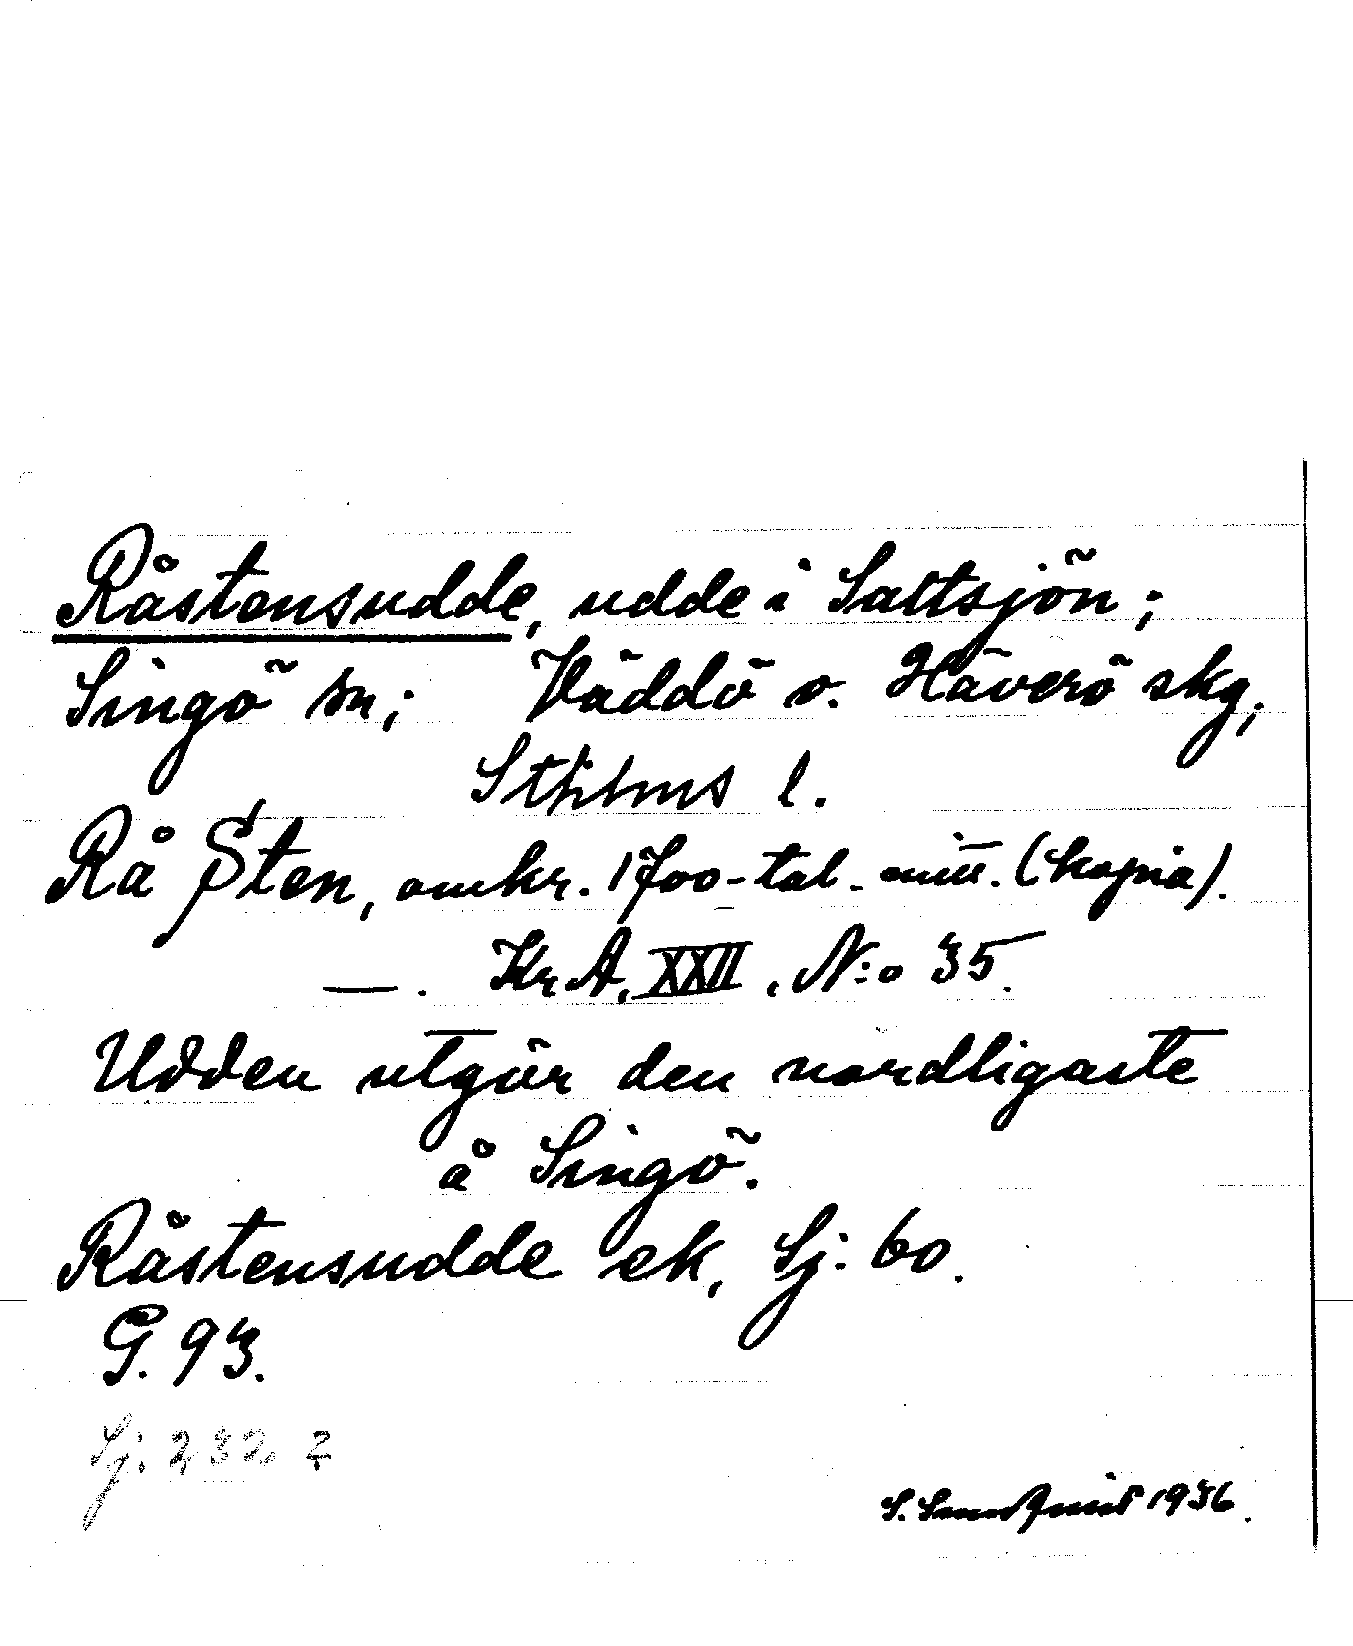 Råstensudde, udde i Saltsjön;
Singö sn; Väddö o. Häverö skg,
Sthlms l.
Rå Sten, omkr. 1700-tal. mitt. (kopia).
—. Kr A, XXII, N:o 35.
Udden utgör den nordligaste
å Singö.
Råstensudde ek, Sj: 60.
G. 93.
Sj: 232 2
S. 1936.